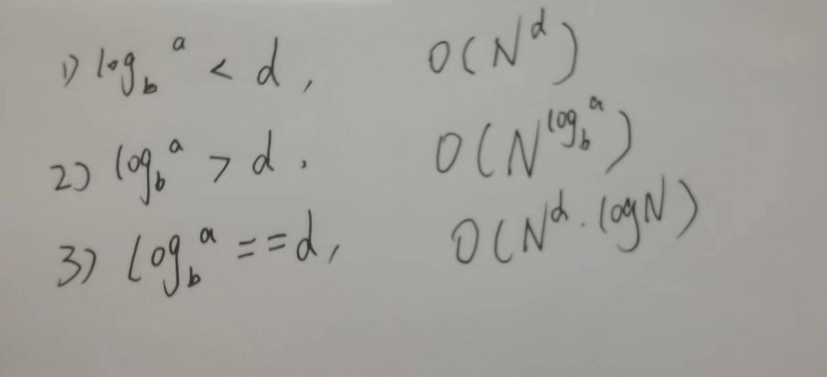 1) log_b^a < d, O(N^d)
2) log_b^a > d. O(N^{log_b^a})
3) log_b^a == d, O(N^d · logN)